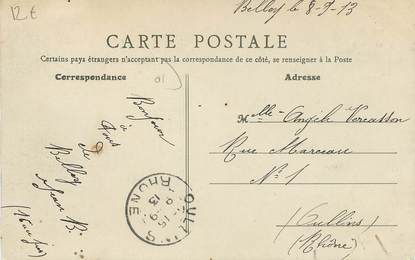 12€
Belloy le 8-9-13
CARTE POSTALE
Certains pays étrangers n'acceptant pas la correspondance de ce côté, se renseigner à la Poste
Correspondance
Adresse
Bonjour
à
Tous
de
Belloy
Jean B.
Melle Angèle
Rue Marceau
No 1
(Oullins)
(Rhône)
OULLINS
RHONE